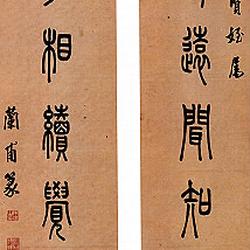 姪屬
遠聞知
相續覺
蘭甫篆